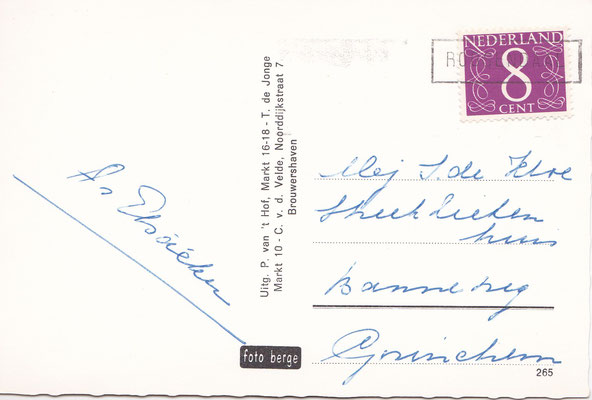 NEDERLAND
8
CENT
Uitg. P. van 't Hof, Markt 16-18 - T. de Jonge
Markt 10 - C. v. d. Velde, Noorddijkstraat 7
Brouwershaven
Mej S. de
Streekziekenhuis
Banneweg
Gorinchem
foto berge
265